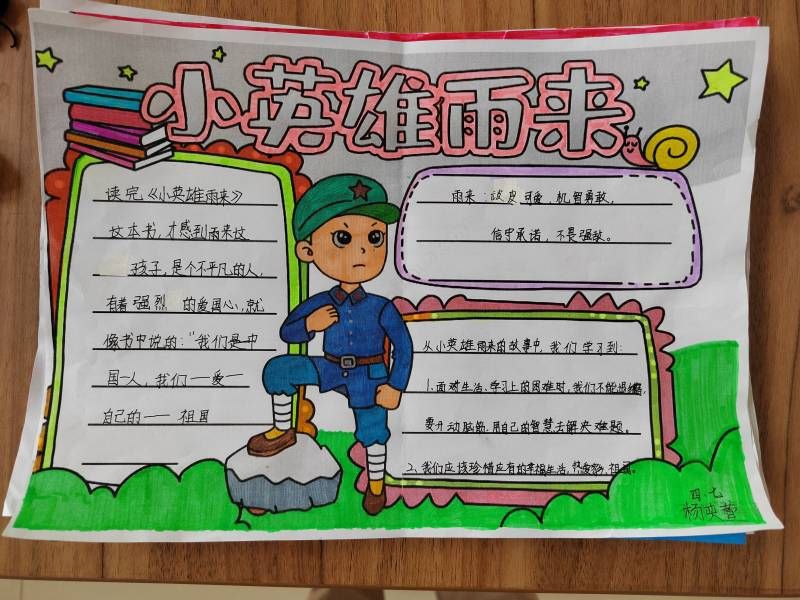 小英雄雨来
读完《小英雄雨来》
这本书,才感到雨来这
孩子,是个不平凡的人,
有着强烈的爱国心,就
像书中说的:“我们是中
国一人,我们一爱一
自己的一一祖国
雨来:调皮可爱,机智勇敢,
信守承诺,不畏强敌。
从小英雄雨来的故事中,我们学习到:
1.面对生活、学习上的困难时,我们不能退缩,
要开动脑筋,用自己的智慧去解决难题。
2.我们应该珍惜应有的幸福生活,热爱祖国。
四·七
杨映